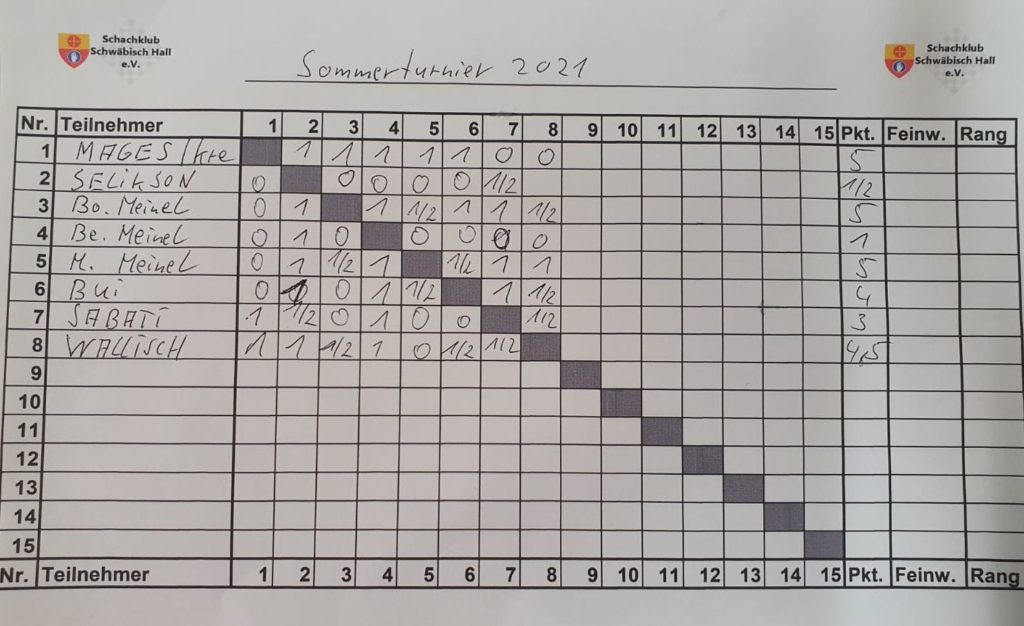 Schachklub
Schwäbisch Hall
e.V.
Sommerturnier 2021
Schachklub
Schwäbisch Hall
e.V.
Nr. Teilnehmer 1 2 3 4 5 6 7 8 9 10 11 12 13 14 15 Pkt. Feinw. Rang
1 MAGES/kre 1 1 1 1 1 0 0 5
2 SELIKSON 0 0 0 0 0 1/2 1/2
3 Bo. Meinel 0 1 1 1/2 1 1 1/2 5
4 Be. Meinel 0 1 0 0 0 0 0 1
5 M. Meinel 0 1 1/2 1 1/2 1 1 5
6 Bui 0 1 0 1 1/2 1 1/2 4
7 SABATI 1 1/2 0 1 0 0 1/2 3
8 WALLISCH 1 1 1/2 1 0 1/2 1/2 4,5
9
10
11
12
13
14
15
Nr. Teilnehmer 1 2 3 4 5 6 7 8 9 10 11 12 13 14 15 Pkt. Feinw. Rang